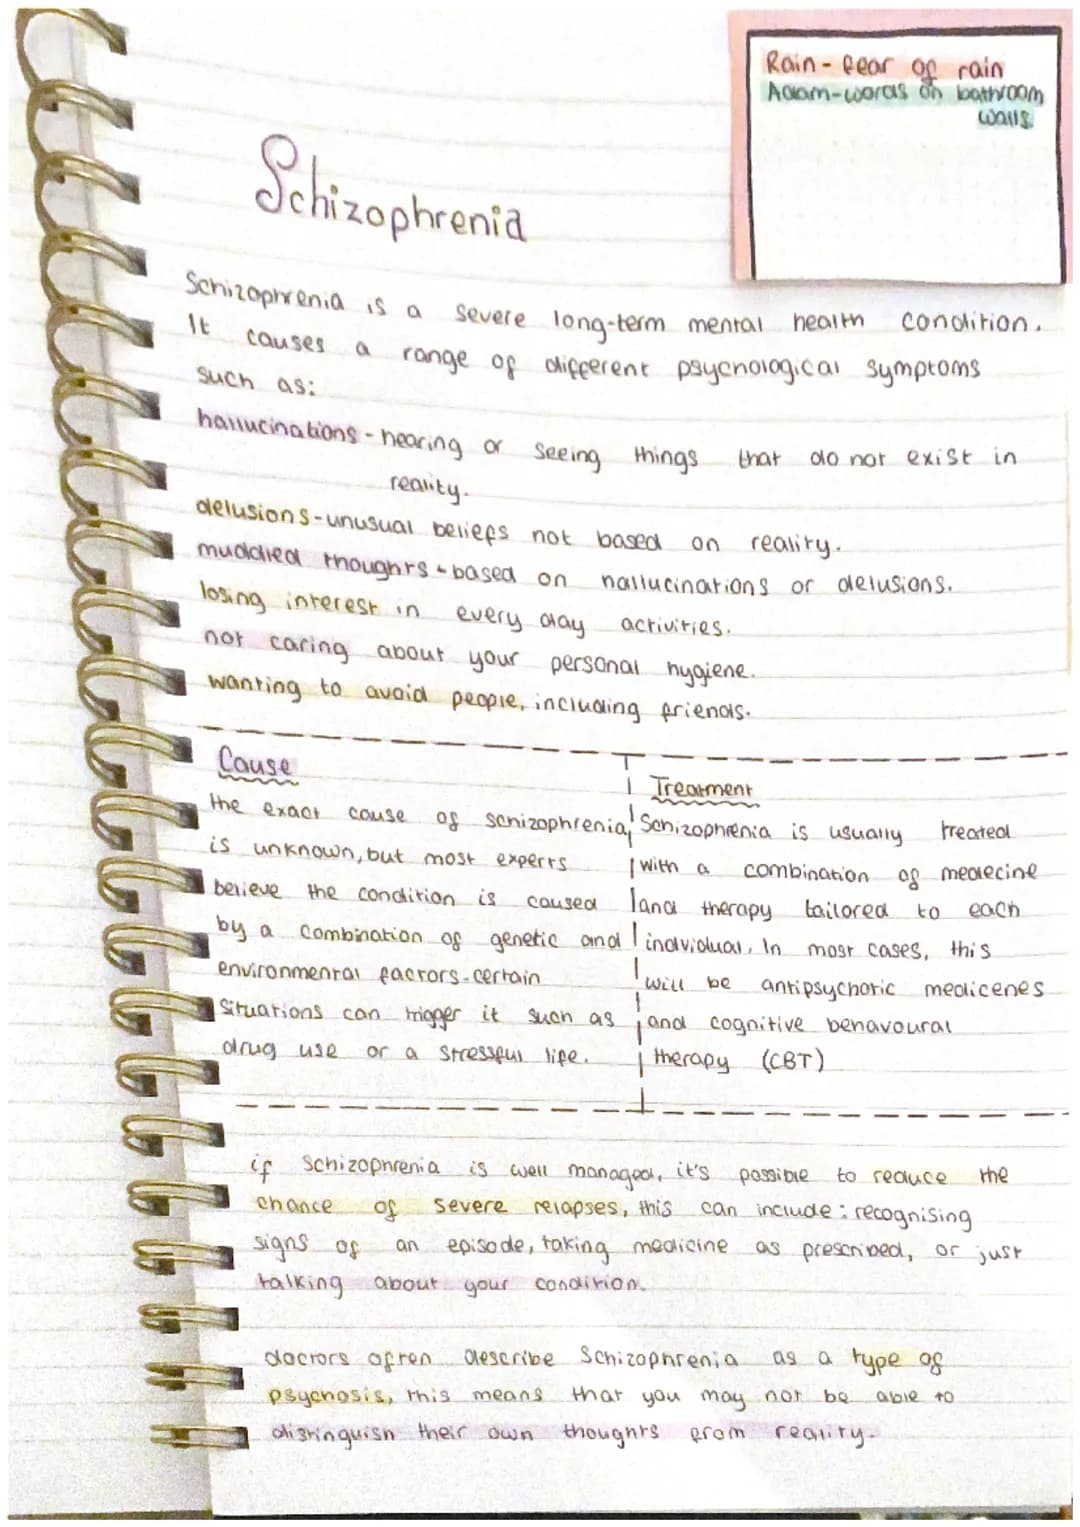 Rain - fear of rain
Adam-words on bathroom
walls.
Schizophrenia
Schizophrenia is a severe long-term mental health condition.
It causes a range of different psychological symptoms
such as:
hallucinations - hearing or seeing things that do not exist in
reality.
delusions - unusual beliefs not based on reality.
muddled thoughts - based on hallucinations or delusions.
losing interest in every day activities.
not caring about your personal hygiene.
wanting to avoid people, including friends.
Cause
the exact cause of schizophrenia
is unknown, but most experts
believe the condition is caused
by a combination of genetic and
environmental factors. certain
situations can trigger it such as
drug use or a stressful life.
Treatment
Schizophrenia is usually treated
with a combination of medecine
and therapy tailored to each
individual. In most cases, this
will be antipsychotic medicenes
and cognitive behavoural
therapy (CBT)
if Schizophrenia is well managed, it's possible to reduce the
chance of severe relapses, this can include: recognising
signs of an episode, taking medicine as prescribed, or just
talking about your condition.
doctors often describe Schizophrenia as a type of
psychosis, this means that you may not be able to
distinguish their own thoughts from reality.